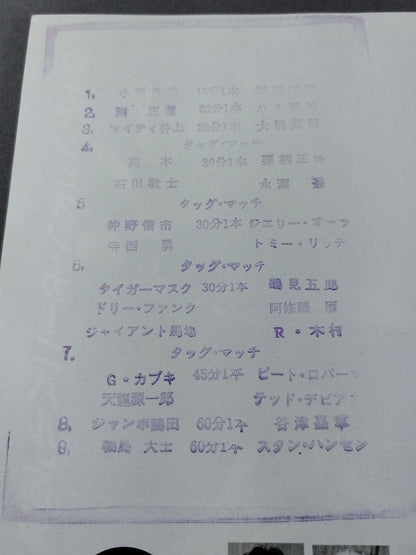 1. 小川良成 15分1本
2. 渕 正信 20分1本 ハル薗田
3. マイティ井上 20分1本 大熊元司
4. タッグ・マッチ
高 木 30分1本 栗栖正伸
石川敬士 永源 遙
5 タッグ・マッチ
仲野信市 30分1本 ジェリー・オーツ
寺西 勇 トミー・リッチ
6. タッグ・マッチ
タイガーマスク 30分1本 鶴見五郎
ドリー・ファンク 阿修羅 原
ジャイアント馬場 R・木村
7. タッグ・マッチ
G・カブキ 45分1本 ピート・ロバーツ
天龍源一郎 テッド・デビアス
8. ジャンボ鶴田 60分1本 谷津嘉章
9. 輪島 大士 60分1本 スタン・ハンセン